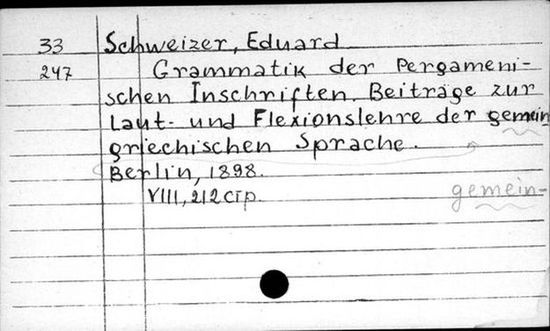 33 Schweizer, Eduard
247 Grammatik der Pergameni-
schen Inschriften. Beiträge zur
Laut- und Flexionslehre der gemein
griechischen Sprache.
Berlin, 1898.
VIII, 212 стр.
gemein-